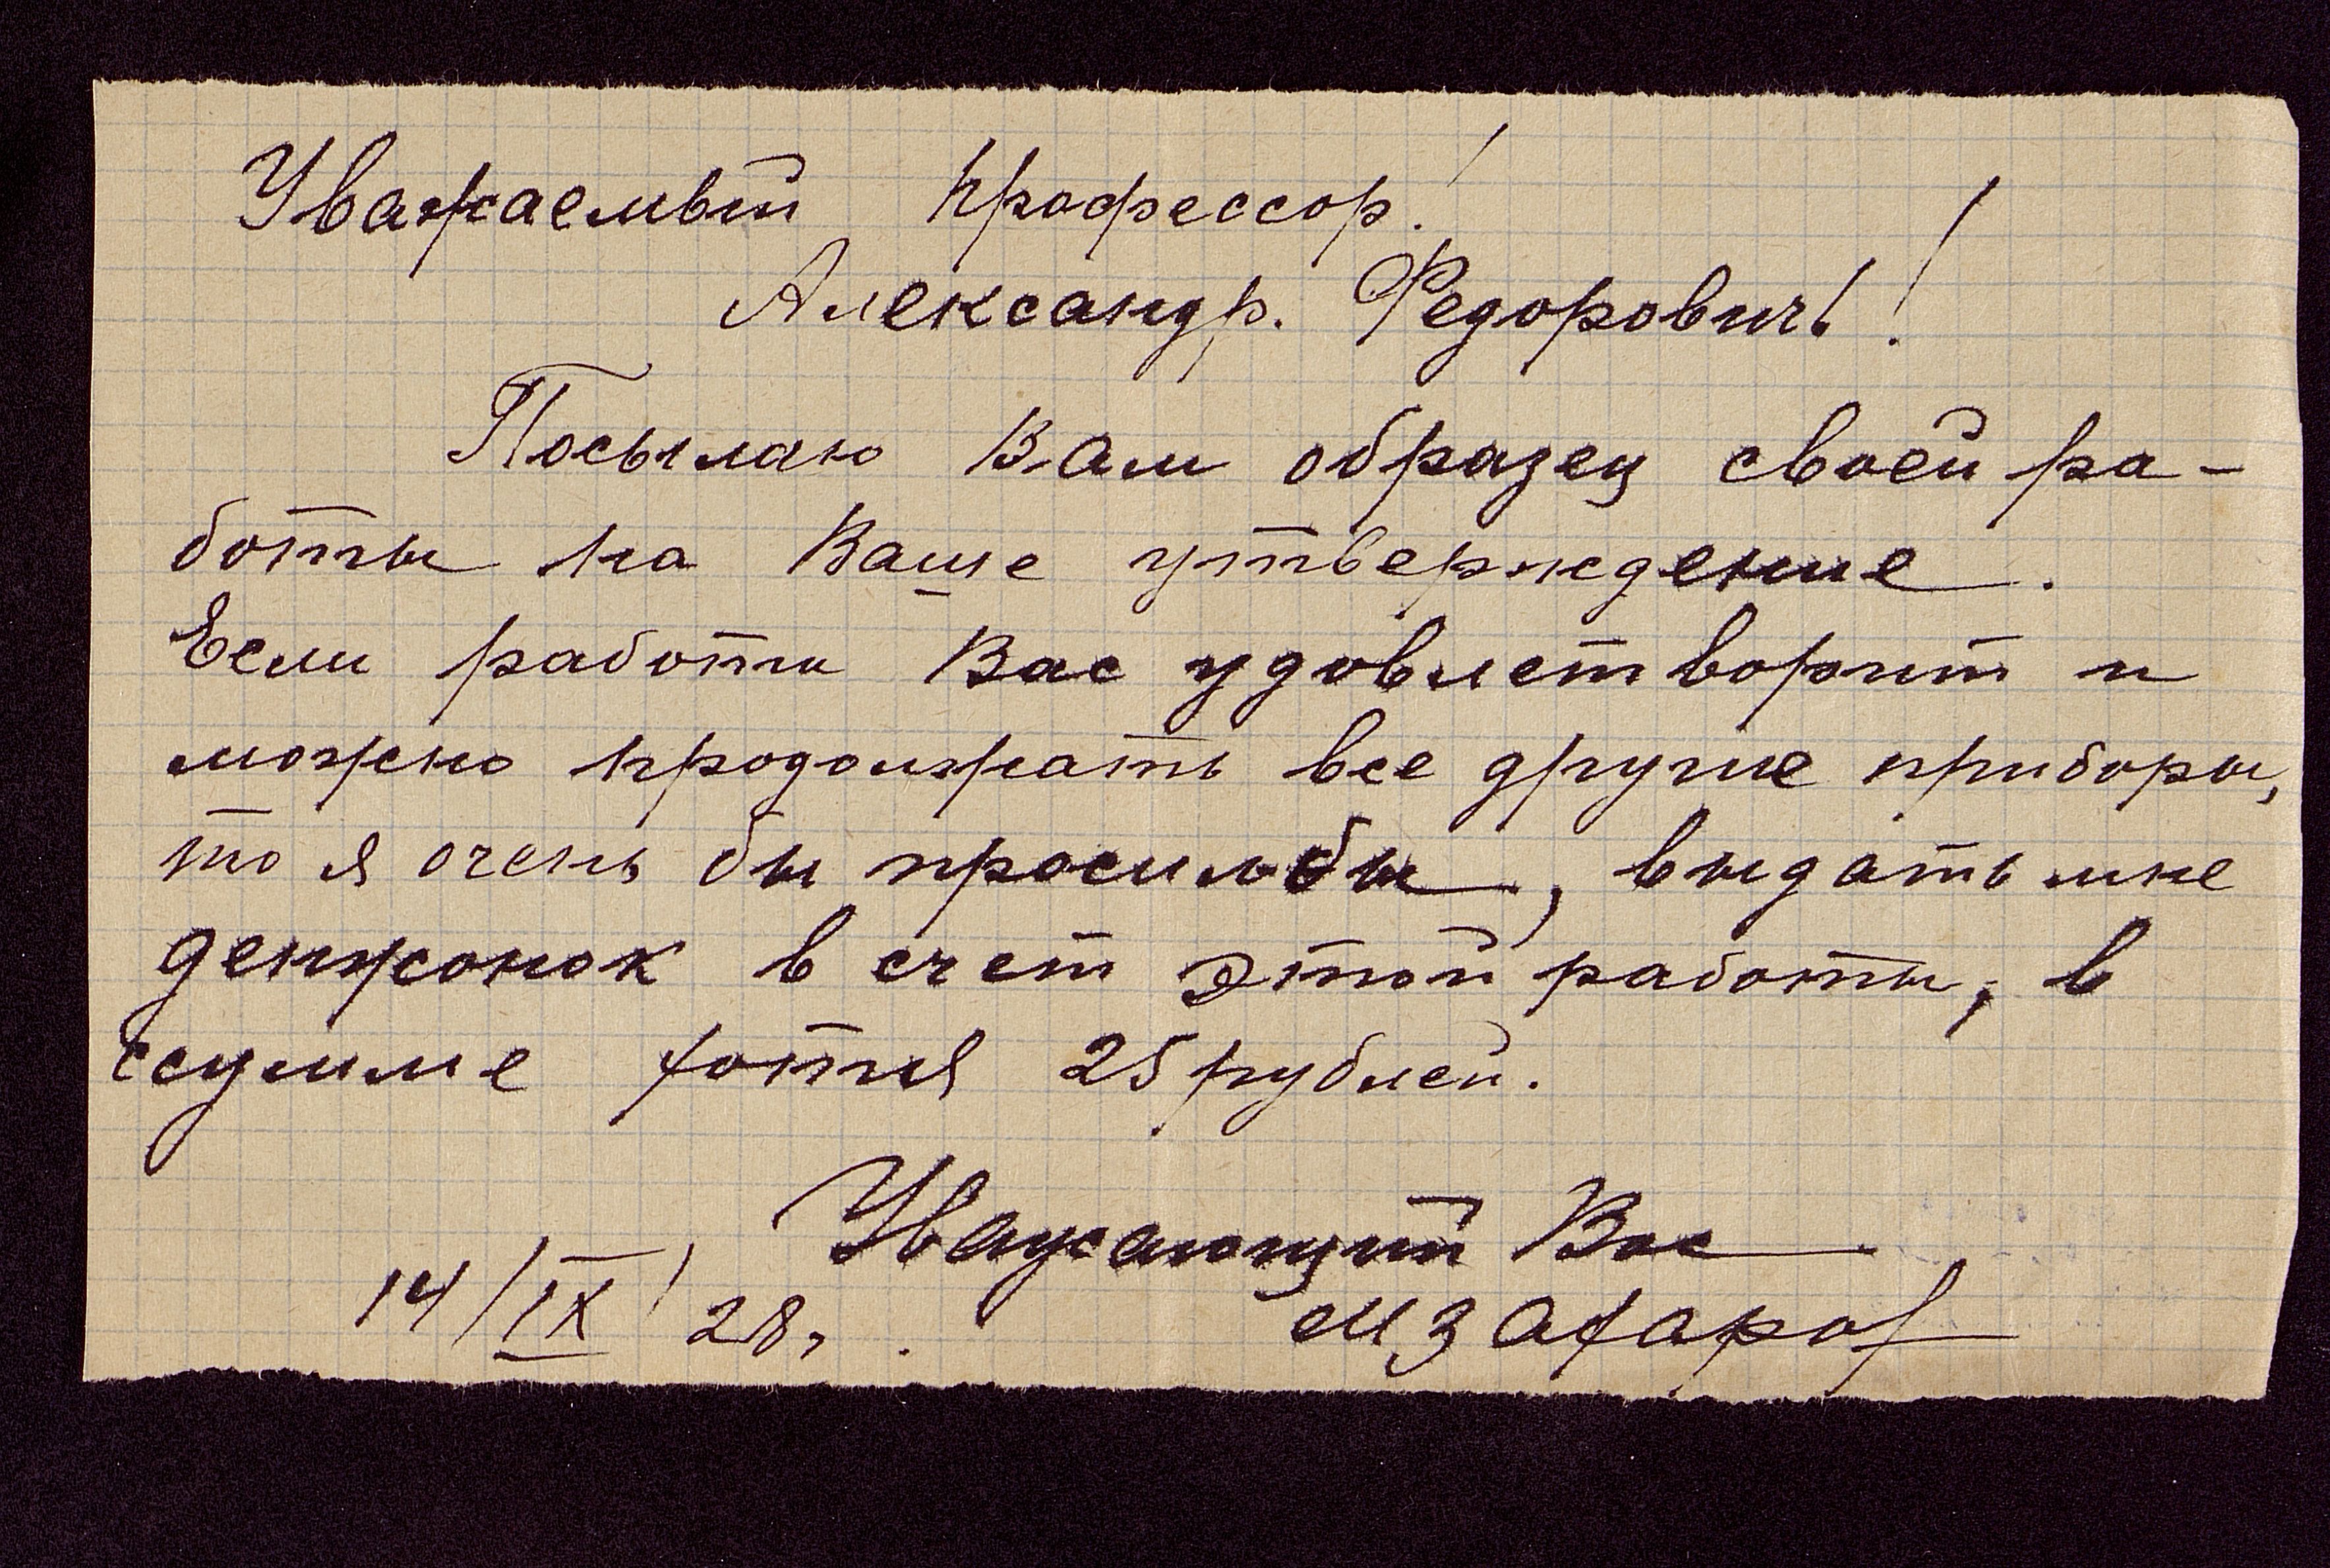 Уважаемый профессор!
Александр. Федоровичь!
Посылаю Вам образец своей ра-
боты на Ваше утверждение.
Если работы Вас удовлетворит и
можно продолжать все другие приборы,
то я очень бы просил бы, выдать мне
денжонок в счет этой работы, в
ссумме хотя 25 рублей.
Уважающий Вас
14/IX/28,.